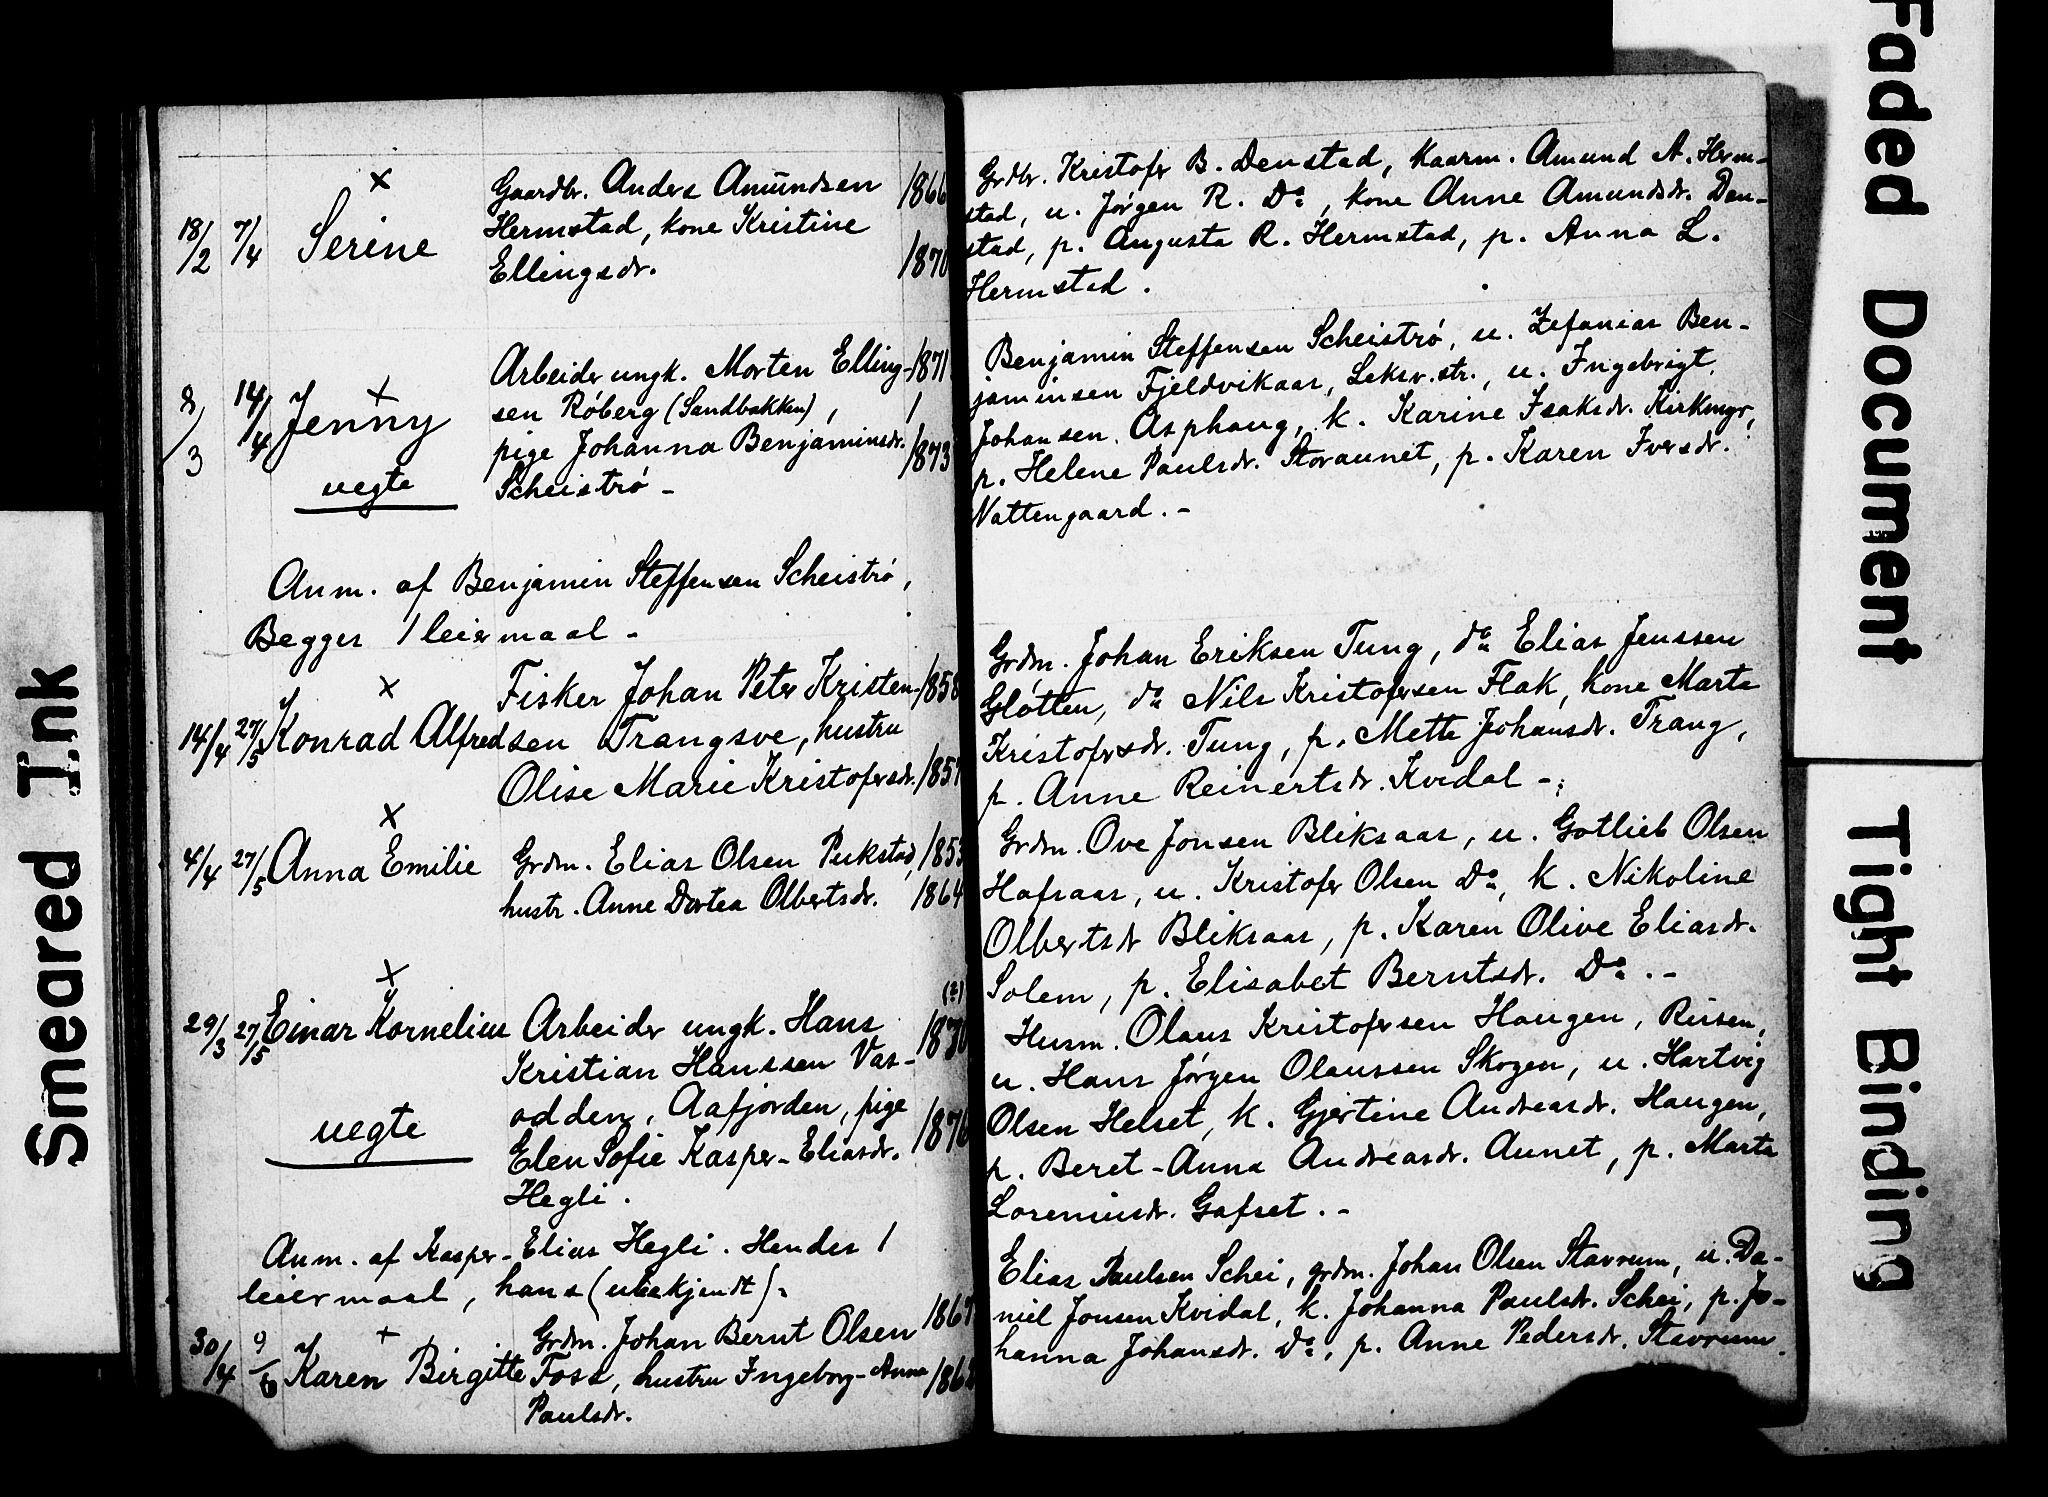 ×
18/2 7/4 Serine
Gaardbr. Anders Amundsen 1866
Hermstad, kone Kristine
Ellingsdr. 1870
Grdbr. Kristofer B. Denstad, kaarm. Amund A. Herm-
stad, u. Jørgen R. Do, kone Anne Amundsdr. Den-
stad, p. Augusta R. Hermstad, p. Anna L.
Hermstad.
×
8/3 14/4 Jenny
uegte
Arbeider ungk. Morten Elling- 1871
sen Røberg (Sandbakken),
pige Johanna Benjaminsdr. 1873
Scheistrø -
Benjamin Steffensen Scheistrø, u. Zefanias Ben-
jaminsen Fjeldvikaas, Leksv. str., u. Ingebrigt
Johansen Asphaug, k. Karine Isaksdr. Kirkmyr,
p. Helene Paulsdr. Storaunet, p. Karen Iversdr.
Nattengaard. -
Anm. af Benjamin Steffensen Scheistrø,
Begges 1 leiermaal -
×
14/4 27/5 Konrad Alfred
Fisker Johan Peter Kristen- 1858
sen Trangsve, hustru
Olise Marie Kristofersdr. 1857
Grdm. Johan Eriksen Tung, do Elias Jenssen
Gløtten, do Nils Kristofersen Flak, kone Marta
Kristofersdr. Tung, p. Mette Johansdr. Trang,
p. Anne Reinertsdr. Kvidal -
×
4/4 27/5 Anna Emilie
Grdm. Elias Olsen Pukstad, 1853
hustr. Anne Dortea Olbertsdr. 1864
Grdm. Ove Jonsen Bliksaas, u. Gotlieb Olsen
Hafsaas, u. Kristofer Olsen Do, k. Nikoline
Olbertsdr Bliksaas, p. Karen Olive Eliasdr.
Solem, p. Elisabet Berntsdr. Do. -
×
29/3 27/5 Einar Kornelius
uegte
(?)
Arbeider ungk. Hans 1870
Kristian Hanssen Vas-
odden, Aafjorden, pige
Elen Sofie Kasper-Eliasdr. 1876
Hegli.
Husm. Olaus Kristofersen Haugen, Risen,
u. Hans Jørgen Olaussen Skogen, u. Hartvig
Olsen Helset, k. Gjertine Andreasdr. Haugen,
p. Beret-Anna Andreasdr. Aunet, p. Marta
Loreniusdr. Gafset. -
Anm. af Kasper-Elias Hegli. Hendes 1
leiermaal, hans (ubekjendt).
+
30/4 9/6 Karen Birgitte
Grdm. Johan Bernt Olsen 1867
Foss, hustru Ingeborg-Anna 1868
Paulsdr.
Elias Paulsen Schei, grdm. Johan Olsen Stavrum, u. Da-
niel Jonsen Kvidal, k. Johanna Paulsdr. Schei, p. Jo-
hanna Johansdr. Do, p. Anne Pedersdr. Stavrum.
Smeared Ink
Faded Document
Tight Binding